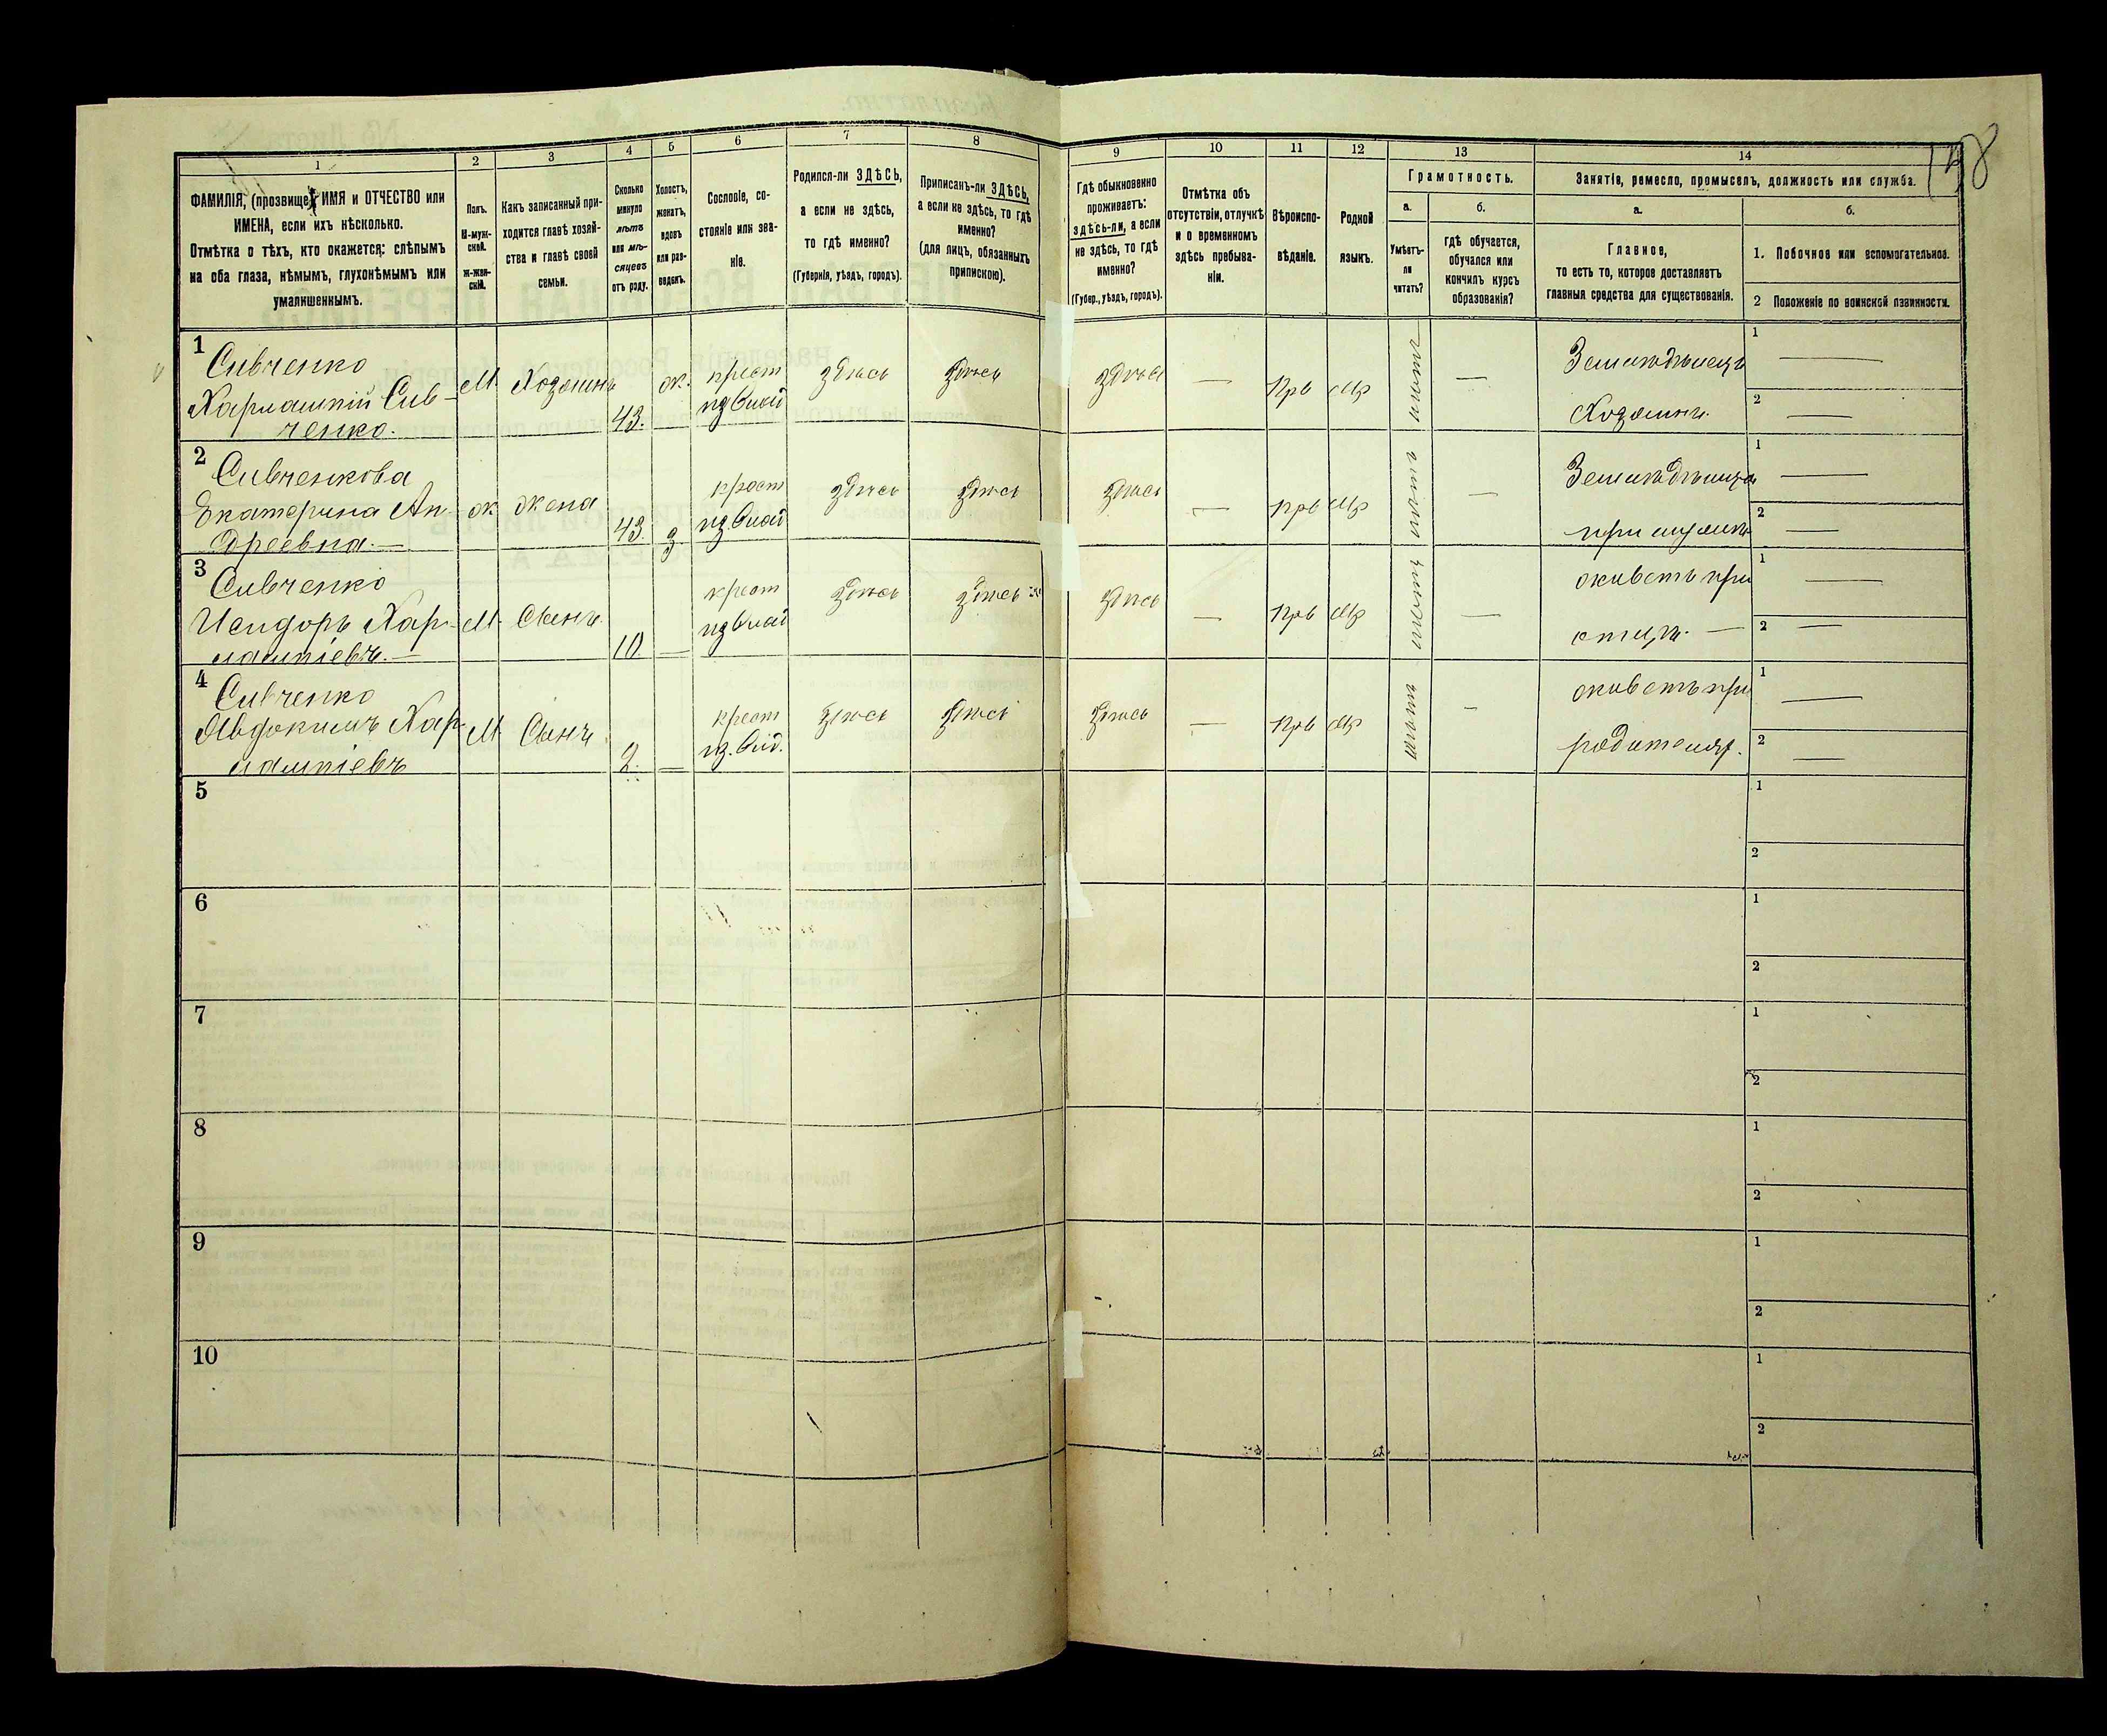 1 2 3 4 5 6 7 8 9 10 11 12 13 14
ФАМИЛІЯ, (прозвище) ИМЯ и ОТЧЕСТВО или
ИМЕНА, если ихъ нѣсколько.
Отмѣтка о тѣхъ, кто окажется: слѣпымъ
на оба глаза, нѣмымъ, глухонѣмымъ или
умалишеннымъ.
Полъ.
М-муж-
ской.
Ж-жен-
скій.
Какъ записанный при-
ходится главѣ хозяй-
ства и главѣ своей
семьи.
Сколько
минуло
лѣтъ
или мѣ-
сяцевъ
отъ роду.
Холостъ,
женатъ,
вдовъ
или раз-
веденъ.
Сословіе, со-
стояніе или зва-
ніе.
Родился-ли ЗДѢСЬ,
а если не здѣсь,
то гдѣ именно?
(Губернія, уѣздъ, городъ).
Приписанъ-ли ЗДѢСЬ,
а если не здѣсь, то гдѣ
именно?
(для лицъ, обязанныхъ
припискою).
Гдѣ обыкновенно
проживаетъ:
здѣсь-ли, а если
не здѣсь, то гдѣ
именно?
(Губер., уѣздъ, городъ).
Отмѣтка объ
отсутствіи, отлучкѣ
и о временномъ
здѣсь пребыва-
ніи.
Вѣроиспо-
вѣданіе.
Родной
языкъ.
Грамотность.
а.
Умѣетъ-
ли
читать?
б.
гдѣ обучается,
обучался или
кончилъ курсъ
образованія?
Занятіе, ремесло, промыселъ, должность или служба.
а.
Главное,
то есть то, которое доставляетъ
главныя средства для существованія.
б.
1. Побочное или вспомогательное.
2 Положеніе по воинской повинности.
1
Сивченко
Харлампій Сив-
ченко.
М. Хозяинъ 43. ж. крест
из влад здѣсь здѣсь здѣсь — прв мр нѣтъ — Земледѣлецъ
Хозяинъ. 1 — 2 —
2
Сивченкова
Екатерина Ан-
дреевна. —
ж жена 43. з. крест
из влад здѣсь здѣсь здѣсь — прв мр нѣтъ — Земледѣлица
при мужѣ 1 — 2 —
3
Сивченко
Исидоръ Хар-
лампіевъ. —
М Сынъ. 10 — крест
из влад здѣсь здѣсь здѣсь — прв мр нѣтъ — живетъ при
отцѣ. — 1 — 2 —
4
Сивченко
Явдокимъ Хар-
лампіевъ
М Сынъ 2. — крест
из. влд. здѣсь здѣсь здѣсь — прв мр нѣтъ — живетъ при
родителях. 1 — 2 —
5 1 2
6 1 2
7 1 2
8 1 2
9 1 2
10 1 2